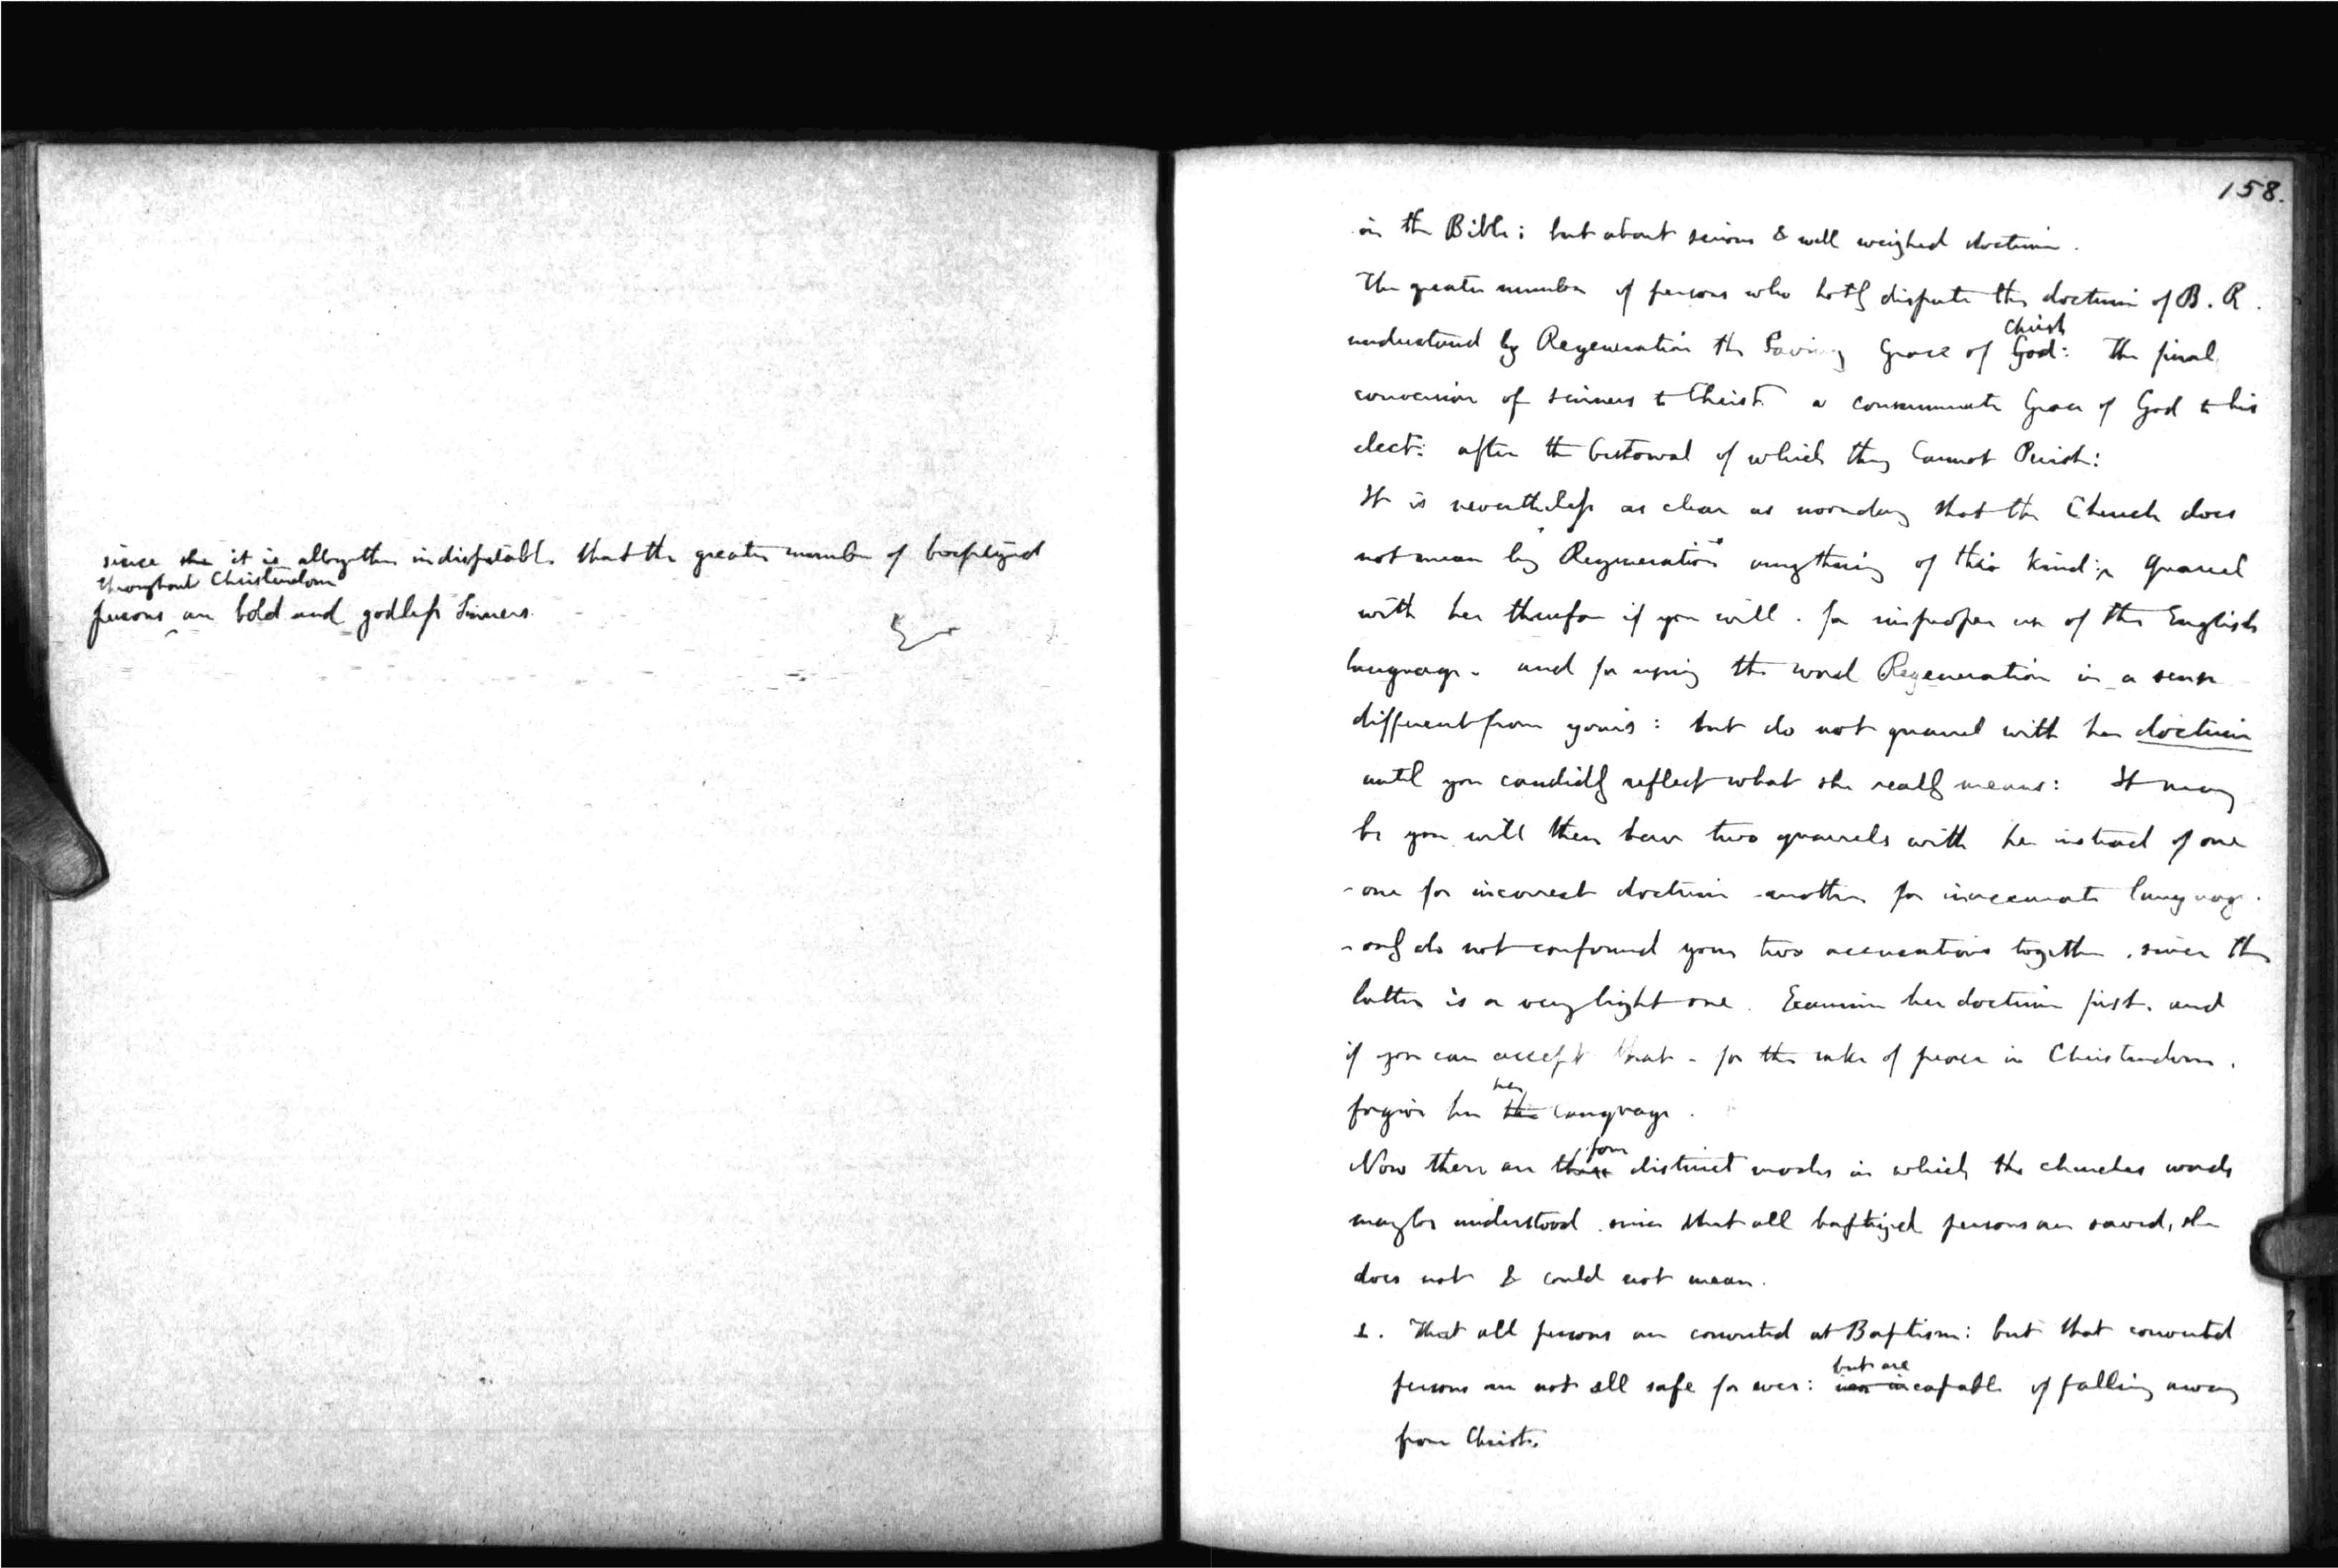 since she it is altogether indisputable that the greater number of baptized
throughout Christendom
persons are bold and godless sinners.
158.
in the Bible: but about serious & well weighed doctrine.
The greater number of persons who hotly dispute this doctrine of B. R.
Christ
understand by Regeneration the Saving Grace of God: The final
conversion of sinners to Christ. a consummate Grace of God to his
elect: after the bestowal of which they Cannot Perish:
It is nevertheless as clear as noonday that the Church does
not mean by Regeneration anything of this kind: Quarrel
with her therefore if you will. for improper use of the English
language - and for using the word Regeneration in a sense
different from yours: but do not quarrel with her doctrine
until you candidly reflect what she really means: It may
be you will then have two quarrels with her instead of one
- one for incorrect doctrine - another for inaccurate language.
- only do not confound your two accusations together, since the
latter is a very light one. Examine her doctrine first, and
if you can accept that - for the sake of peace in Christendom.
her
forgive her the language.
four
Now there are three distinct modes in which the churches words
may be understood. since that all baptized persons are saved, she
does not & could not mean.
1. That all persons are converted at Baptism: but that converted
but are
persons are not all safe for ever: incapable of falling away
from Christ.